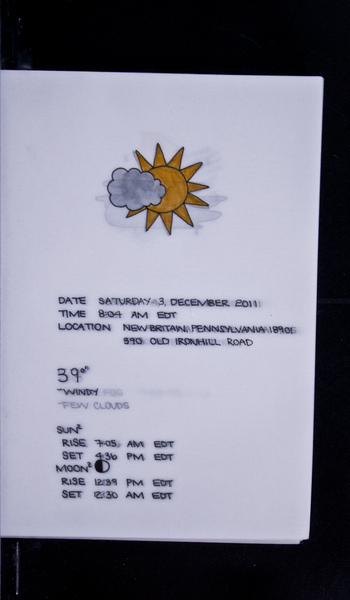 DATE SATURDAY 3, DECEMBER 2011
TIME 8:04 AM EDT
LOCATION NEW BRITAIN, PENNSYLVANIA 18901
590 OLD IRONHILL ROAD
39°
~WINDY FOG
~FEW CLOUDS
SUN²
RISE 7:05 AM EDT
SET 4:36 PM EDT
MOON²
RISE 12:39 PM EDT
SET 12:30 AM EDT